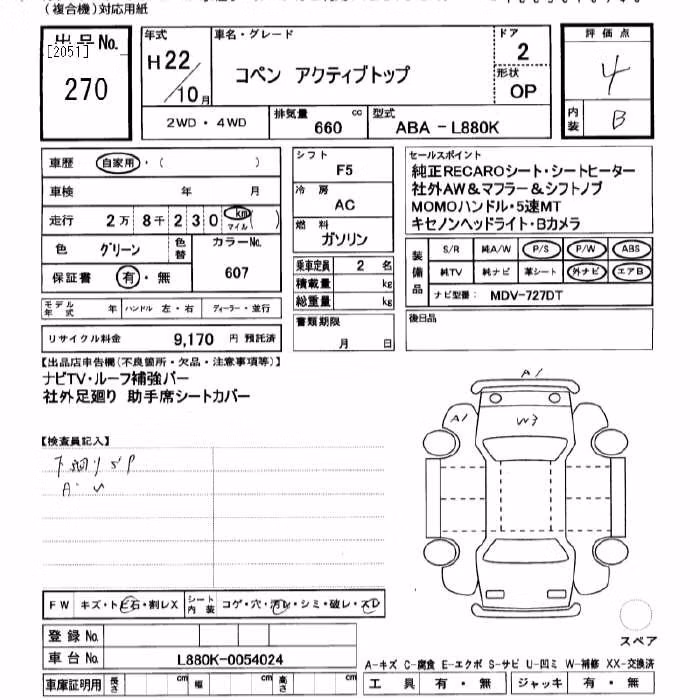 (複合機)対応用紙
出品No.
[2051]
270
年式
H22/10月
車名・グレード
コペン アクティブトップ
ドア
2
形状
OP
評価点
4
内装
B
2WD・4WD
排気量
660 cc
型式
ABA-L880K
車歴 自家用・( )
車検 年 月
走行 2万8千230 km マイル ( )
色 グリーン
色替
カラーNo.
607
保証書 有・無
モデル年式 年 ハンドル 左・右 ディーラー・並行
リサイクル料金 9,170 円 預託済
シフト
F5
冷房
AC
燃料
ガソリン
乗車定員 2 名
積載量 kg
総重量 kg
書類期限
月 日
セールスポイント
純正RECAROシート・シートヒーター
社外AW&マフラー&シフトノブ
MOMOハンドル・5速MT
キセノンヘッドライト・Bカメラ
装備品
S/R 純A/W P/S P/W ABS
純TV 純ナビ 革シート 外ナビ エアB
ナビ型番: MDV-727DT
後日品
【出品店申告欄(不良箇所・欠品・注意事項等)】
ナビTV・ルーフ補強バー
社外足廻り 助手席シートカバー
【検査員記入】
下廻りSP
A・W
A1
A1
W3
FW キズ・トビ石・割レX
シート内装 コゲ・穴・汚レ・シミ・破レ・スレ
登録No.
車台No. L880K-0054024
車庫証明用 長さ cm 幅 cm 高さ cm
スペア
A-キズ C-腐食 E-エクボ S-サビ U-凹ミ W-補修 XX-交換済
工具 有・無 ジャッキ 有・無